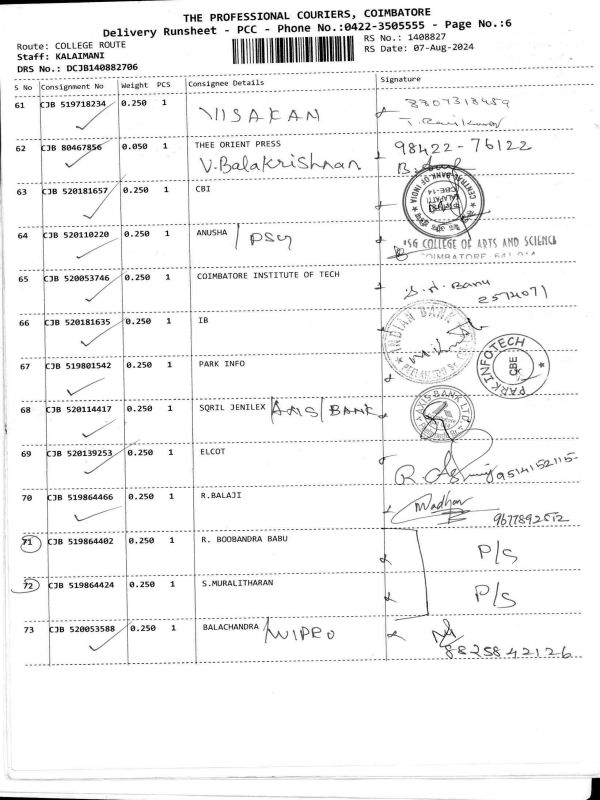 THE PROFESSIONAL COURIERS, COIMBATORE
Delivery Runsheet - PCC - Phone No.:0422-3505555 - Page No.:6
Route: COLLEGE ROUTE
RS No.: 1408827
Staff: KALAIMANI
RS Date: 07-Aug-2024
DRS No.: DCJB140882706
S No Consignment No Weight PCS Consignee Details Signature
61 CJB 519718234 0.250 1 VISAKAM 8807318489
62 CJB 80467856 0.050 1 THEE ORIENT PRESS 98422-76122
V.Balakrishnan
63 CJB 520181657 0.250 1 CBI
CENTRAL BANK OF INDIA
CBE-14
64 CJB 520110220 0.250 1 ANUSHA / PSG
PSG COLLEGE OF ARTS AND SCIENCE
COIMBATORE - 641 014
65 CJB 520053746 0.250 1 COIMBATORE INSTITUTE OF TECH
2574071
66 CJB 520181635 0.250 1 IB
INDIAN BANK
67 CJB 519801542 0.250 1 PARK INFO
PARK INFOTECH
CBE
68 CJB 520114417 0.250 1 SQRIL JENILEX / AMS / BANK
AXIS BANK LTD
69 CJB 520139253 0.250 1 ELCOT
9514152115-
70 CJB 519864466 0.250 1 R.BALAJI Madhan
9677892512
71 CJB 519864402 0.250 1 R. BOOBANDRA BABU P/S
72 CJB 519864424 0.250 1 S.MURALITHARAN P/S
73 CJB 520053588 0.250 1 BALACHANDRA / WIPRO
8825842126